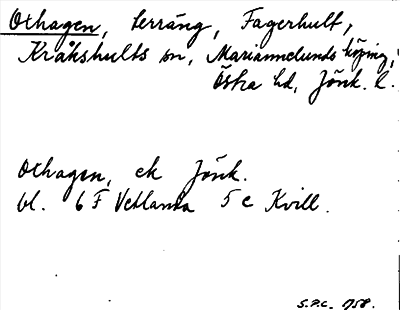 Othagen, terräng, Fagerhult,
Kråkshults sn, Mariannelunds köping,
Östra hd, Jönk. l.
Othagen, ek Jönk.
bl. 6 F Vetlanda 5 c Kvill.
S.P.C. 1958.